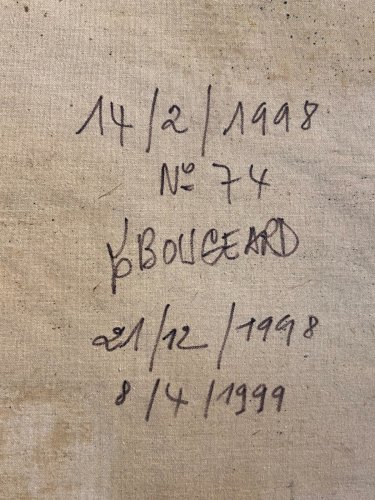 14/2/1998
Nº 74
BOUGEARD
21/12/1998
8/4/1999